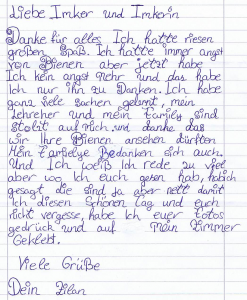 Liebe Imker und Imkerin
Danke für alles Ich hatte riesen
großen Spaß. Ich hatte immer angst
von Bienen aber jetzt habe
Ich kein angst mehr und das habe
Ich nur ihn zu Danken. Ich habe
ganz viele sachen gelernt, mein
Lehreher und mein Family sind
Stolit auf mich und danke das
wir Ihre Bienen ansehen dürften
Mein Familye Bedanken sich auch.
Und Ich weiß Ich rede zu viel
aber wo Ich euch gesen hab, habich
gesagt die sind ja aber nett damit
Ich diesen Schönen Tag und euch
nicht vergesse, habe Ich euer Fotos
gedrück und auf mein Zimmer
Geklebt.
Viele Grüße
Dein Zilan